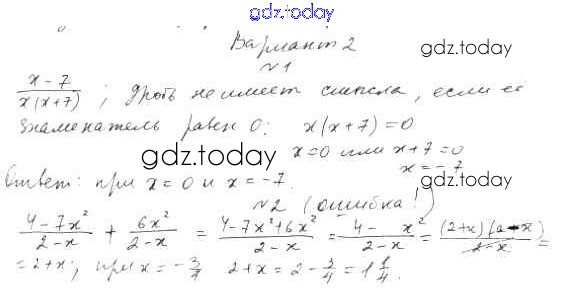 gdz.today
Вариант 2
gdz.today
№1
(x-7)/(x(x+7)) ; дробь не имеет смысла, если её
знаменатель равен 0: x(x+7)=0
gdz.today
x=0 или x+7=0
x=-7
Ответ: при x=0 и x=-7.
gdz.today
№2 (ошибка!)
(4-7x²)/(2-x) + (6x²)/(2-x) = (4-7x²+6x²)/(2-x) = (4-x²)/(2-x) = ((2+x)(2-x))/(2-x) =
=2+x; при x=-3/4 2+x=2-3/4=1 1/4.
gdz.today